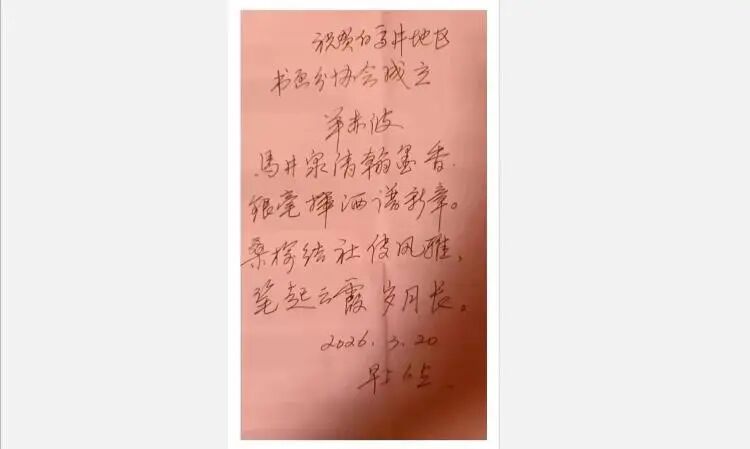 祝贺白马井地区
书画分协会成立
羊赤波
马井泉清翰墨香,
银毫挥洒谱新章。
桑榆结社传风雅,
笔起云霞岁月长。
2026.3.20
早上